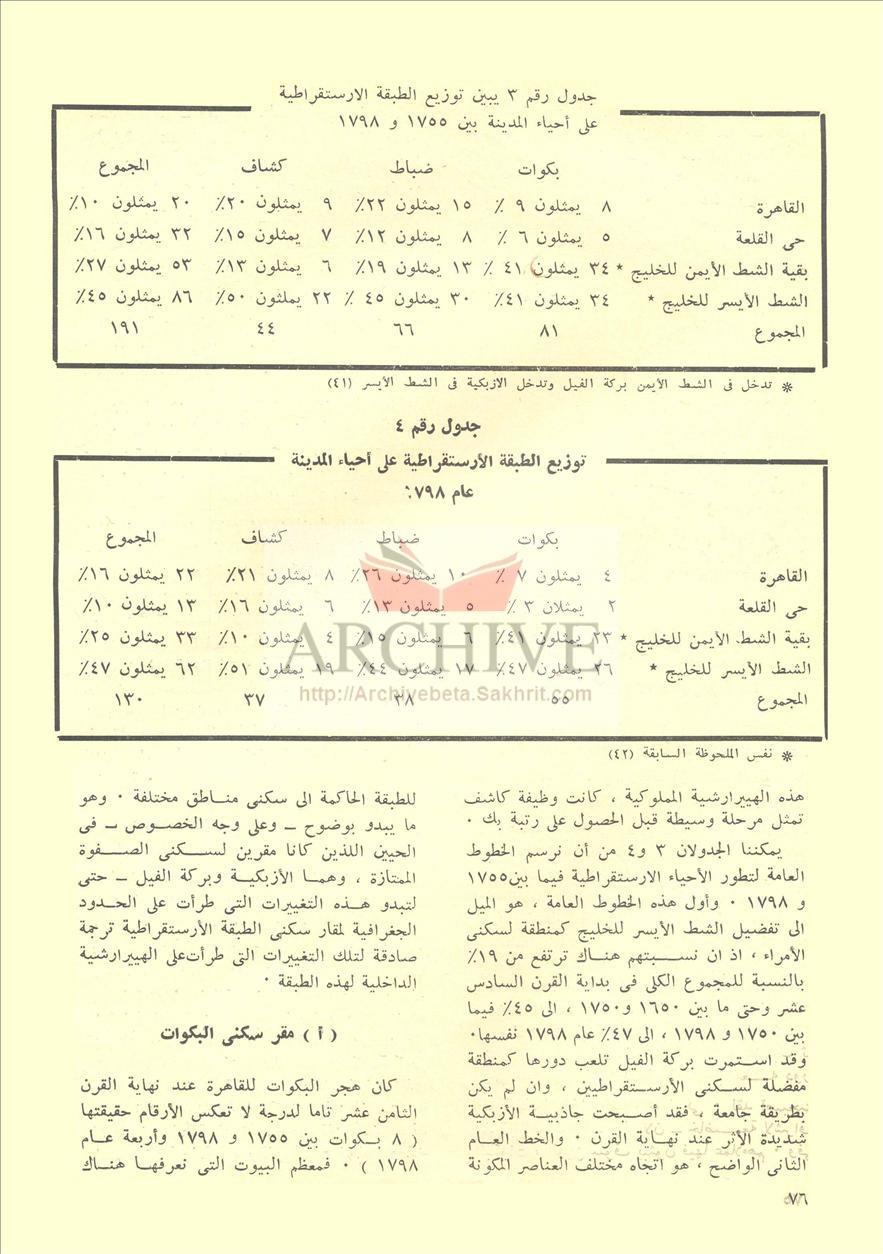 جدول رقم ٣ يبين توزيع الطبقة الارستقراطية
على أحياء المدينة بين ١٧٥٥ و ١٧٩٨
بكوات ضباط كشاف المجموع
القاهرة ٨ يمثلون ٩ ٪ ١٥ يمثلون ٢٢٪ ٩ يمثلون ٢٠٪ ٢٠ يمثلون ١٠٪
حى القلعة ٥ يمثلون ٦ ٪ ٨ يمثلون ١٢٪ ٧ يمثلون ١٥٪ ٣٢ يمثلون ١٦٪
بقية الشط الأيمن للخليج * ٣٤ يمثلون ٤١ ٪ ١٣ يمثلون ١٩٪ ٦ يمثلون ١٣٪ ٥٣ يمثلون ٢٧٪
الشط الأيسر للخليج * ٣٤ يمثلون ٤١٪ ٣٠ يمثلون ٤٥ ٪ ٢٢ يملثون ٥٠٪ ٨٦ يمثلون ٤٥٪
المجموع ٨١ ٦٦ ٤٤ ١٩١
* تدخل فى الشط الأيمن بركة الفيل وتدخل الازبكية فى الشط الأيسر (٤١)
جدول رقم ٤
توزيع الطبقة الأرستقراطية على أحياء المدينة
عام ١٧٩٨
بكوات ضباط كشاف المجموع
القاهرة ٤ يمثلون ٧ ٪ ١٠ يمثلون ٢٦٪ ٨ يمثلون ٢١٪ ٢٢ يمثلون ١٦٪
حى القلعة ٢ يمثلان ٣ ٪ ٥ يمثلون ١٣٪ ٦ يمثلون ١٦٪ ١٣ يمثلون ١٠٪
بقية الشط الأيمن للخليج * ٢٣ يمثلون ٤١٪ ٦ يمثلون ١٥٪ ٤ يمثلون ١٠٪ ٣٣ يمثلون ٢٥٪
الشط الأيسر للخليج * ٢٦ يمثلون ٤٧٪ ١٧ يمثلون ٤٤٪ ١٩ يمثلون ٥١٪ ٦٢ يمثلون ٤٧٪
المجموع ٥٥ ٣٨ ٣٧ ١٣٠
ARCHIVE
http://Archivebeta.Sakhrit.com
* نفس الملحوظة السابقة (٤٢)
هذه الهييرارشية المملوكية ، كانت وظيفة كاشف
تمثل مرحلة وسيطة قبل الحصول على رتبة بك ٠
يمكننا الجدولان ٣ و٤ من أن نرسم الخطوط
العامة لتطور الأحياء الارستقراطية فيما بين١٧٥٥
و ١٧٩٨ ٠ وأول هذه الخطوط العامة ، هو الميل
الى تفضيل الشط الأيسر للخليج كمنطقة لسكنى
الأمراء ، اذ ان نسبتهم هناك ترتفع من ١٩٪
بالنسبة للمجموع الكلى فى بداية القرن السادس
عشر وحتى ما بين ١٦٥٠ و١٧٥٠ ، الى ٤٥٪ فيما
بين ١٧٥٠ و ١٧٩٨ ، الى ٤٧٪ عام ١٧٩٨ نفسها٠
وقد استمرت بركة الفيل تلعب دورها كمنطقة
مفضلة لسكنى الأرستقراطيين ، وان لم يكن
بطريقة جامعة ، فقد أصبحت جاذبية الأزبكية
شديدة الأثر عند نهاية القرن ٠ والخط العام
الثانى الواضح ، هو اتجاه مختلف العناصر المكونة
للطبقة الحاكمة الى سكنى مناطق مختلفة ٠ وهو
ما يبدو بوضوح – وعلى وجه الخصوص – فى
الحيين اللذين كانا مقرين لسكنى الصفوة
الممتازة ، وهما الأزبكية وبركة الفيل – حتى
لتبدو هذه التغييرات التى طرأت على الحدود
الجغرافية لمقار سكنى الطبقة الأرستقراطية ترجمة
صادقة لتلك التغييرات التى طرأت على الهييرارشية
الداخلية لهذه الطبقة ٠
( أ ) مقر سكنى البكوات
كان هجر البكوات للقاهرة عند نهاية القرن
الثامن عشر تاما لدرجة لا تعكس الأرقام حقيقتها
( ٨ بكوات بين ١٧٥٥ و ١٧٩٨ وأربعة عام
١٧٩٨ ) ٠ فمعظم البيوت التى نعرفها هناك
٧٦